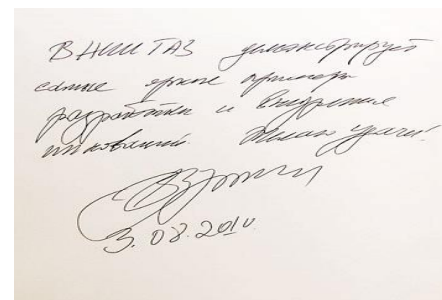 ВНИИГАЗ демонстрирует
самые яркие примеры
разработки и внедрения
инноваций. Желаю удачи!
3.08.2010